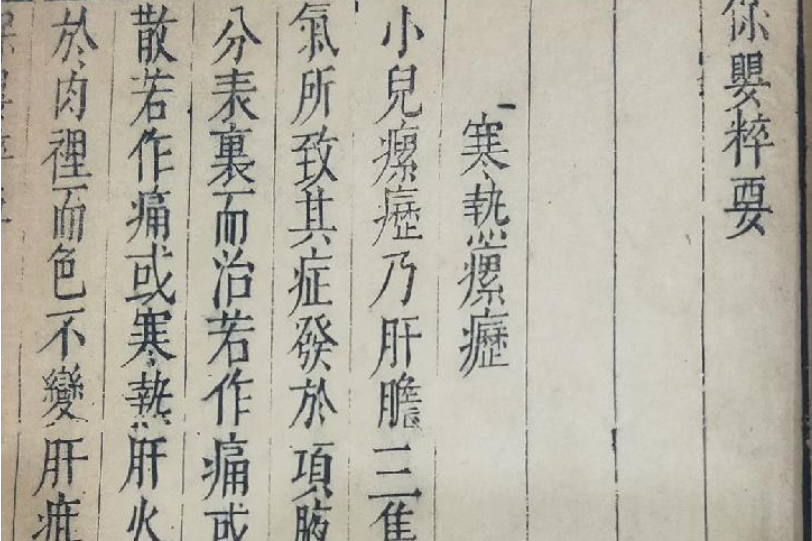 保嬰粹要
寒熱瘰癧
小兒瘰癧乃肝膽三焦
氣所致其症發於項腋
分表裏而治若作痛或
散若作痛或寒熱肝火
於肉裡而色不變肝疳